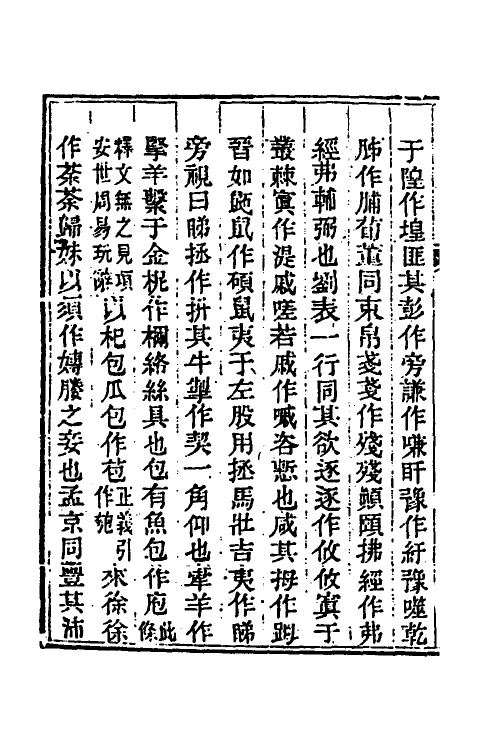 于隍作堭匪其彭作旁謙作嗛盱豫作紆豫噬乾
胏作脯荀董同束帛戔戔作殘殘顛頤拂經作弗
經弗輔弼也劉表一行同其欲逐逐作攸攸寘于
叢棘寘作湜戚嗟若戚作嘁咨慙也咸其拇作𨈭
晉如鼫鼠作碩鼠夷于左股用拯馬壯吉夷作睇
旁視曰睇拯作拼其牛掣作契一角仰也牽羊作
掔羊繫于金柅作檷絡絲具也包有魚包作庖此條
釋文無之見項安世周易玩辭以杞包瓜包作苞正義引作匏來徐徐
作荼荼歸妹以須作嬬媵之妾也孟京同豐其沛